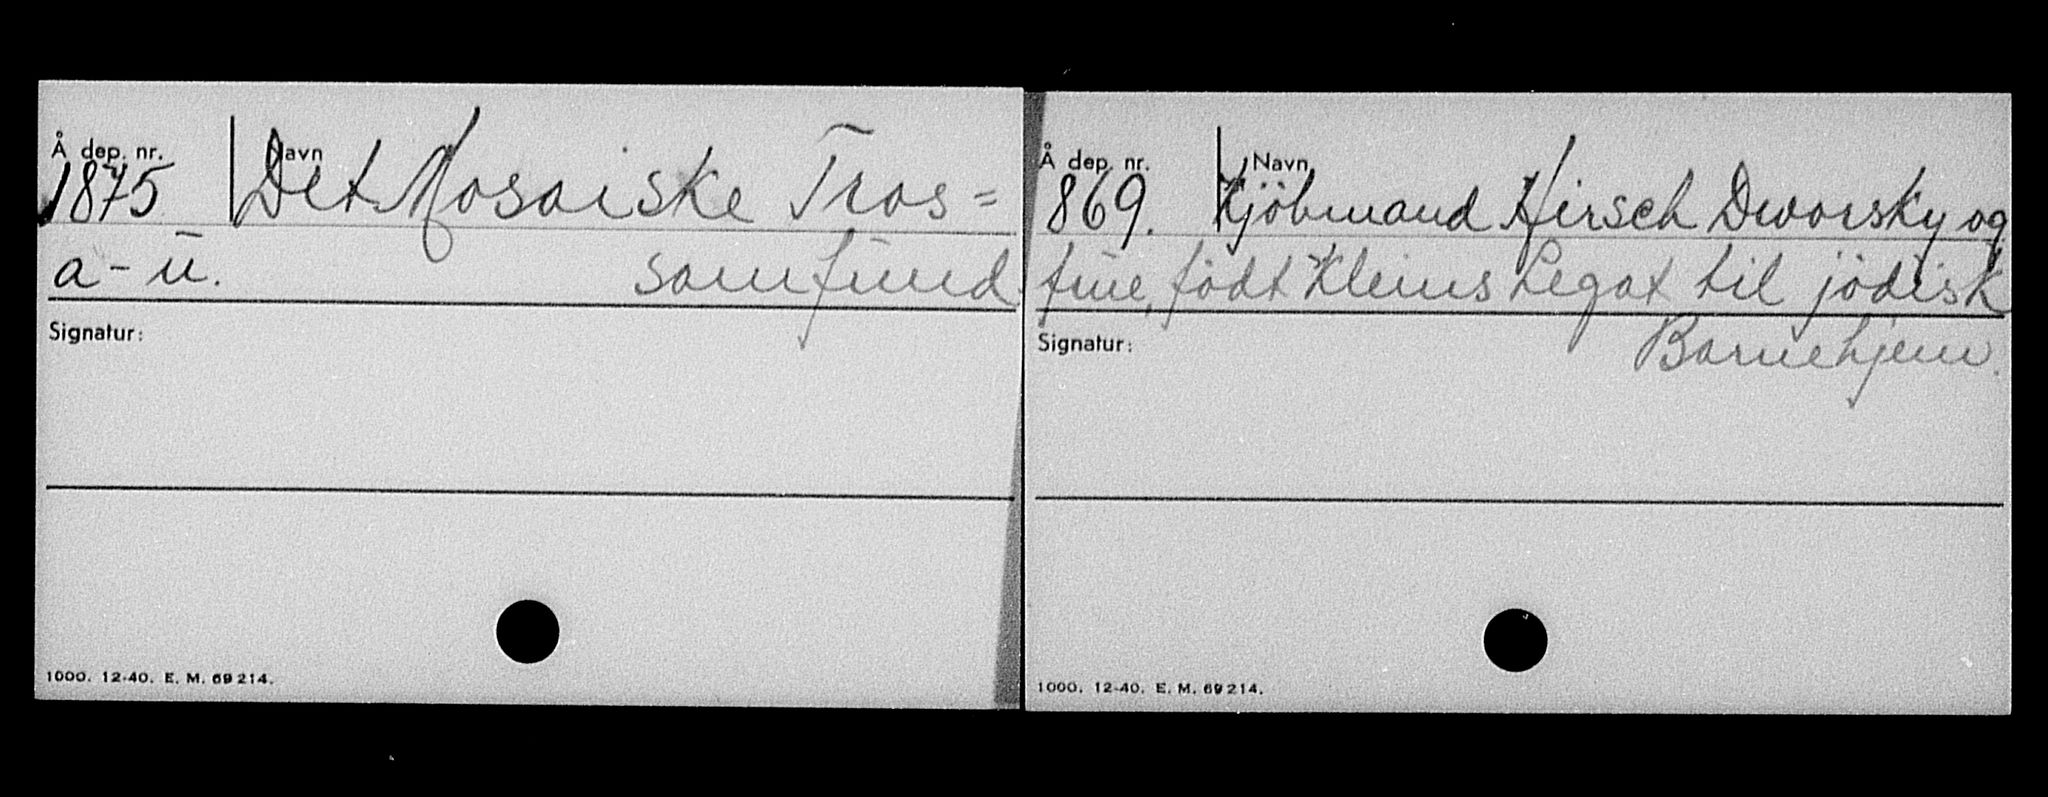 Å dep. nr. Navn
1875 Det Mosaiske Tros=
a-u. samfund
Signatur:
1000. 12-40. E. M. 69214.
Å dep. nr. Navn
869. Kjöbmand Hirsch Dworsky og
frue, födt Kleins Legat til jödisk
Signatur: Barnehjem.
1000. 12-40. E. M. 69214.